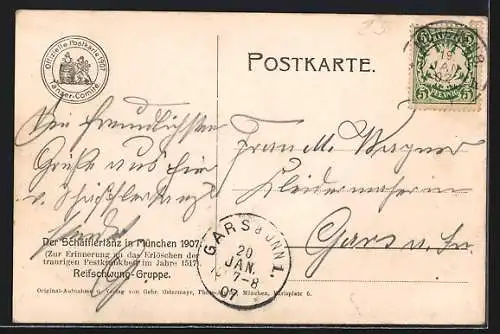 Offizielle Postkarte 1907
Tänzer-Comité
POSTKARTE.
BAYERN
5 5
PFENNIG
19
JAN
Die freundlichsten
Grüße aus hier
v. Schäfflertanz
Frau M. Wagner
Kleidermacherin
Gars a. Inn
GARS B. INN 1.
20
JAN.
7-8
07
Der Schäfflertanz in München 1907
(Zur Erinnerung an das Erlöschen der
traurigen Pestkrankheit im Jahre 1517)
Reifschwung-Gruppe.
Original-Aufnahme u. Verlag von Gebr. Ostermayr, München, Karlsplatz 6.